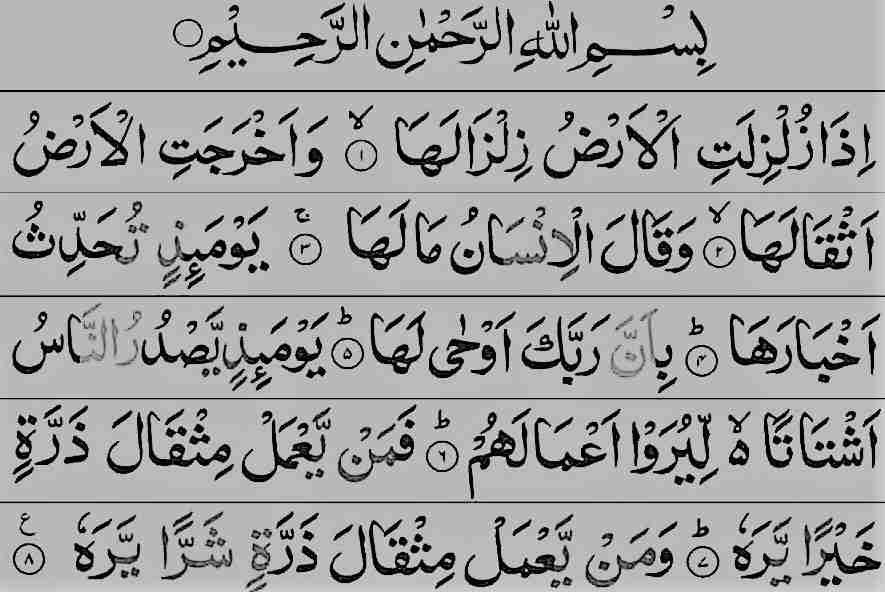 بِسْمِ اللّٰهِ الرَّحْمٰنِ الرَّحِيْمِ ○
اِذَا زُلْزِلَتِ الْاَرْضُ زِلْزَالَهَا ۙ﴿۱﴾ وَاَخْرَجَتِ الْاَرْضُ
اَثْقَالَهَا ۙ﴿۲﴾ وَقَالَ الْاِنْسَانُ مَا لَهَا ۚ﴿۳﴾ يَوْمَئِذٍ تُحَدِّثُ
اَخْبَارَهَا ؕ﴿۴﴾ بِاَنَّ رَبَّكَ اَوْحٰى لَهَا ؕ﴿۵﴾ يَوْمَئِذٍ يَّصْدُرُ النَّاسُ
اَشْتَاتًا ۙ۬ لِّيُرَوْا اَعْمَالَهُمْ ؕ﴿۶﴾ فَمَنْ يَّعْمَلْ مِثْقَالَ ذَرَّةٍ
خَيْرًا يَّرَهٗ ؕ﴿۷﴾ وَمَنْ يَّعْمَلْ مِثْقَالَ ذَرَّةٍ شَرًّا يَّرَهٗ ﴿۸﴾ ع